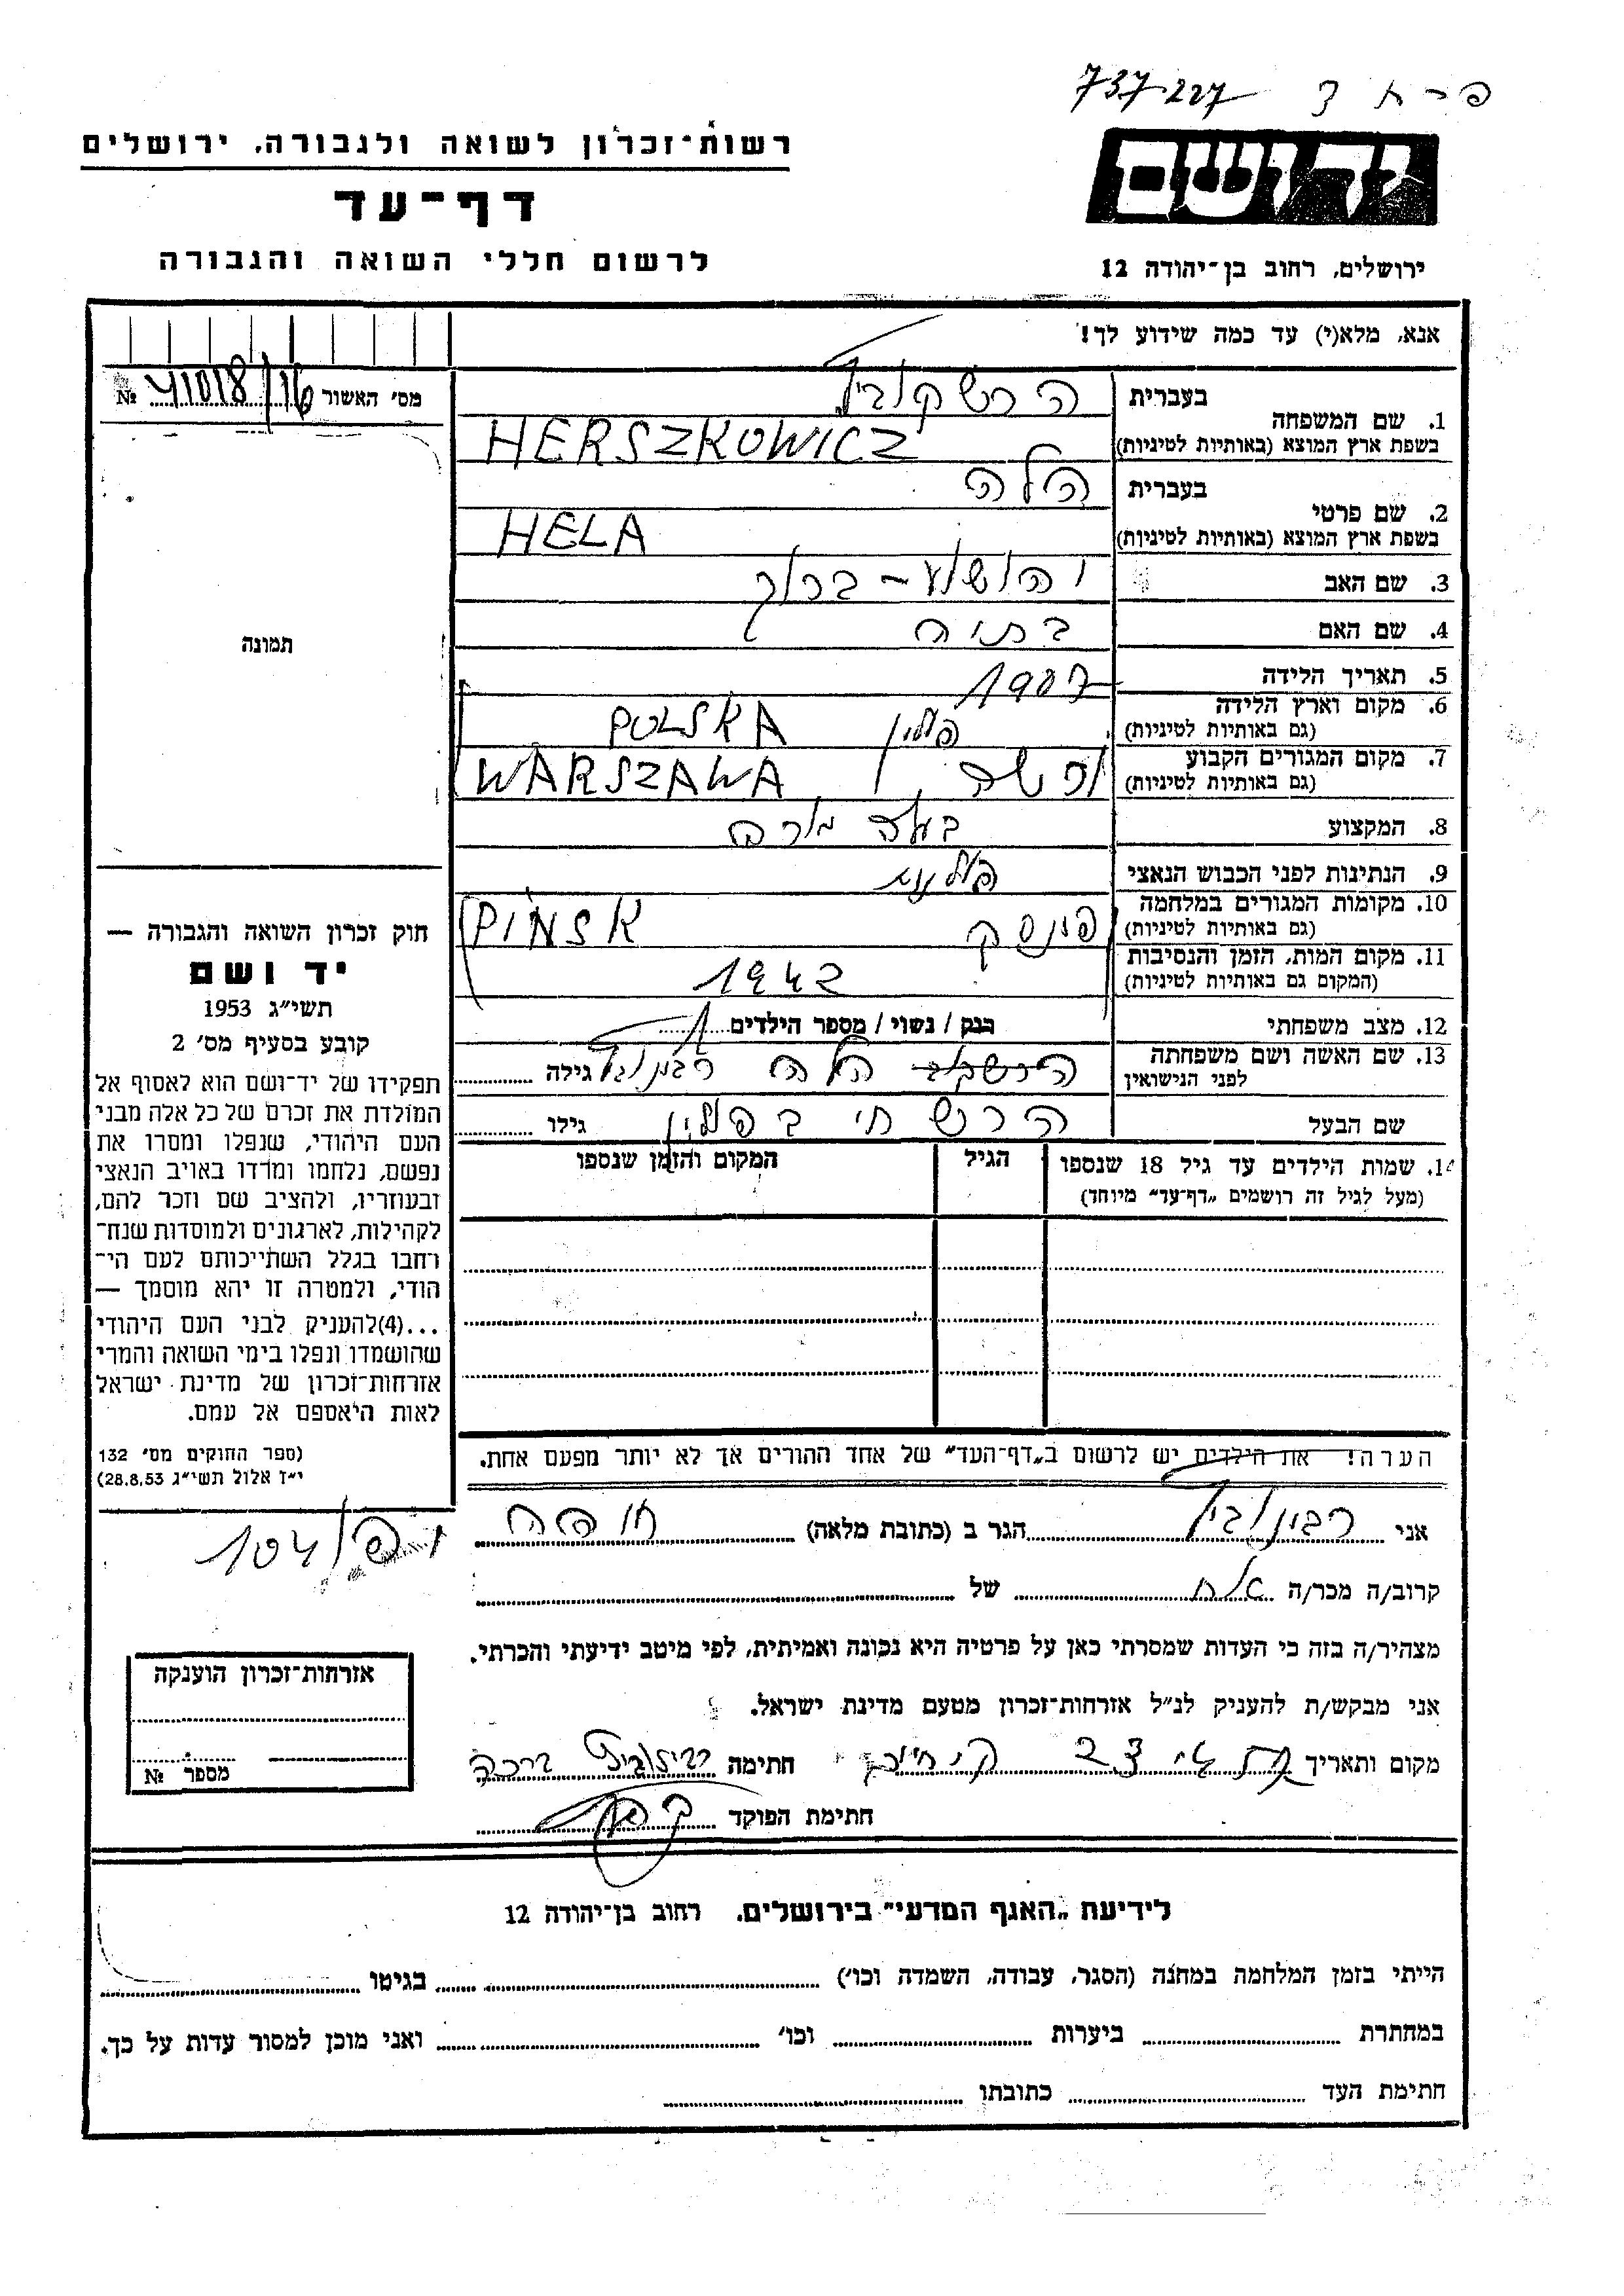 737227
רשות־זכרון לשואה ולגבורה, ירושלים
יד ושם
דף־עד
לרשום חללי השואה והגבורה
ירושלים, רחוב בן־יהודה 12
אנא, מלא(י) עד כמה שידוע לך!
מס׳ האשור № 41018/16
1. שם המשפחה בעברית הרשקוביץ
בשפת ארץ המוצא (באותיות לטיניות) HERSZKOWICZ
2. שם פרטי בעברית הלה
בשפת ארץ המוצא (באותיות לטיניות) HELA
3. שם האב יהושע – ברוך
4. שם האם בתיה
תמונה
5. תאריך הלידה 1907
6. מקום וארץ הלידה (גם באותיות לטיניות) פולין POLSKA
7. מקום המגורים הקבוע (גם באותיות לטיניות) ורשה WARSZAWA
8. המקצוע
9. הנתינות לפני הכבוש הנאצי פולנית
10. מקומות המגורים במלחמה (גם באותיות לטיניות) פינסק PINSK
11. מקום המות, הזמן והנסיבות (המקום גם באותיות לטיניות) 1942
12. מצב משפחתי רנק / נשוי / מספר הילדים 1
13. שם האשה ושם משפחתה לפני הנישואין הרשקוביץ הלה רבינוביץ גילה
שם הבעל הרש חי בפולין גילו
14. שמות הילדים עד גיל 18 שנספו
(מעל לגיל זה רושמים „דף־עד״ מיוחד)
הגיל
המקום והזמן שנספו
חוק זכרון השואה והגבורה —
יד ושם
תשי״ג 1953
קובע בסעיף מס׳ 2
תפקידו של יד־ושם הוא לאסוף אל
המולדת את זכרם של כל אלה מבני
העם היהודי, שנפלו ומסרו את
נפשם, נלחמו ומרדו באויב הנאצי
ובעוזריו, ולהציב שם וזכר להם,
לקהילות, לארגונים ולמוסדות שנח־
רחבו בגלל השתייכותם לעם הי־
הודי, ולמטרה זו יהא מוסמך —
...(4)להעניק לבני העם היהודי
שהושמדו ונפלו בימי השואה והמרי
אזרחות־זכרון של מדינת ישראל
לאות היאספם אל עמם.
(ספר החוקים מס׳ 132
י״ז אלול תשי״ג 28.8.53)
הערה! את הילדים יש לרשום ב„דף־העד״ של אחד ההורים אך לא יותר מפעם אחת.
אני רבינוביץ הגר ב (כתובת מלאה) חיפה
104/
קרוב/ה מכר/ה אח של
מצהיר/ה בזה כי העדות שמסרתי כאן על פרטיה היא נכונה ואמיתית, לפי מיטב ידיעתי והכרתי.
אני מבקש/ת להעניק לנ״ל אזרחות־זכרון מטעם מדינת ישראל.
מקום ותאריך חתימה
חתימת הפוקד
אזרחות־זכרון הוענקה
מספר №
לידיעת „האגף המדעי״ בירושלים, רחוב בן־יהודה 12
הייתי בזמן המלחמה במחנה (הסגר, עבודה, השמדה וכו׳) בגיטו
במחתרת ביערות וכו׳ ואני מוכן למסור עדות על כך.
חתימת העד כתובתו